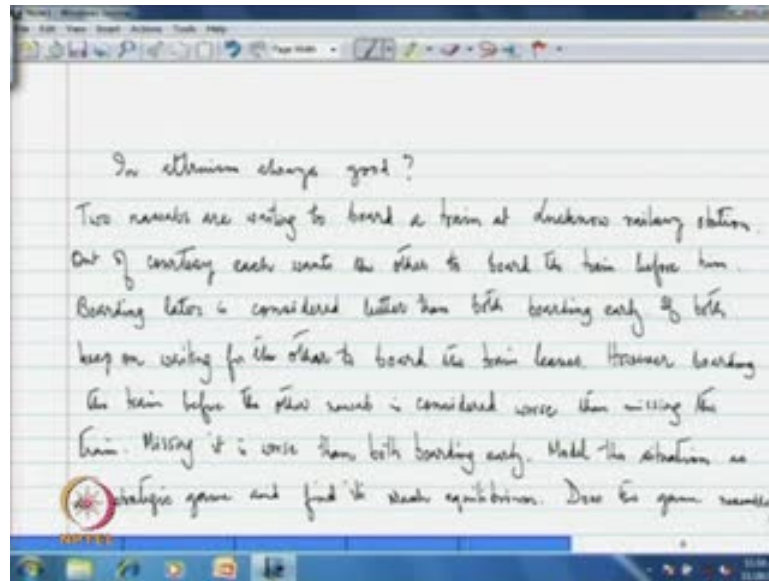 Is altruism always good?
Two nawabs are waiting to board a train at Lucknow railway station.
Out of courtesy each wants the other to board the train before him.
Boarding later is considered better than both boarding early. If both
keep on waiting for the other to board the train leaves. However boarding
the train before the other nawab is considered worse than missing the
train. Missing it is worse than both boarding early. Model the situation as
strategic game and find its Nash equilibrium. Does the game
NPTEL